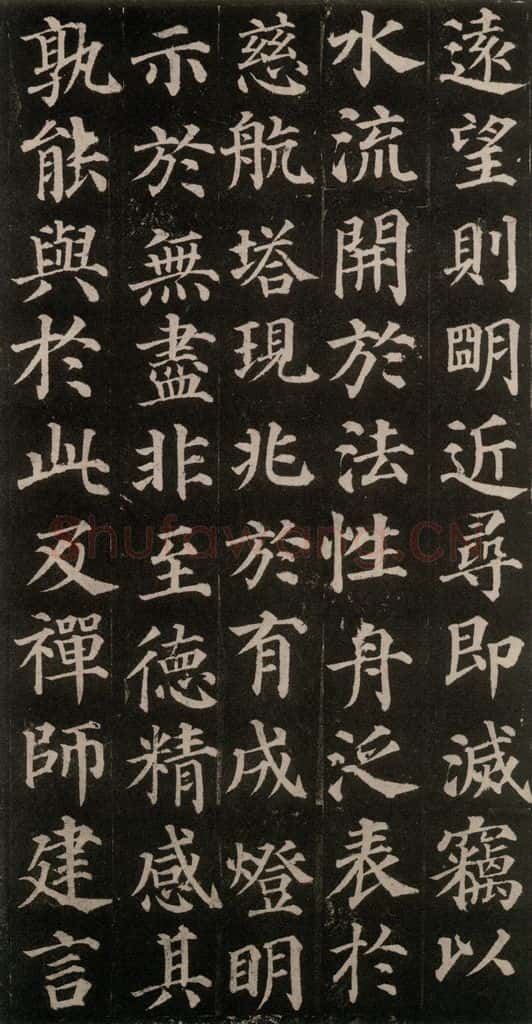 遠望則朙近尋即滅竊以
水流開於法性身泛表於
慈航塔現兆於有成燈明
示於無盡非至德精感其
孰能與於此及禪師建言
Shufawang.CN